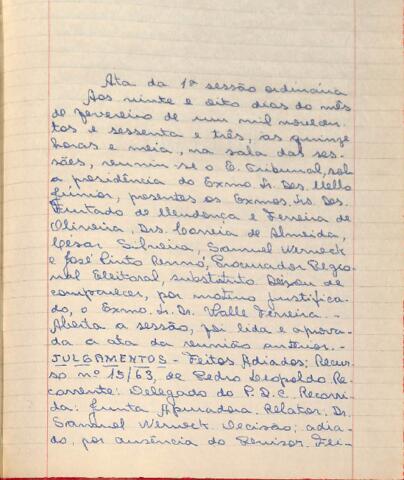 Ata da 1ª sessão ordinária
Aos vinte e oito dias do mês
de fevereiro de um mil novecen-
tos e sessenta e três, as quinze
horas e meia, na sala das ses-
sões, reuniu-se o E. Tribunal, sob
a presidência do Exmo. Sr. Des. Mello
Júnior, presentes os Exmos. Srs. Des.
Furtado de Mendonça e Ferreira de
Oliveira, Drs. Correia de Almeida,
Cesar Silveira, Samuel Werneck
e José Pinto Renno, Procurador Regio-
nal Eleitoral, substituto. Deixou de
comparecer, por motivo justifica-
do, o Exmo. Sr. Dr. Valle Ferreira. -
Aberta a sessão, foi lida e aprova-
da a ata da reunião anterior. -
JULGAMENTOS - Feitos Adiados: Recur-
so nº 15/63, de Pedro Leopoldo. Re-
corrente: Delegado do P.D.C. Recorri-
da: Junta Apuradora. Relator: Dr.
Samuel Werneck. Decisão: adia-
do, por ausência do Revisor. Fei-